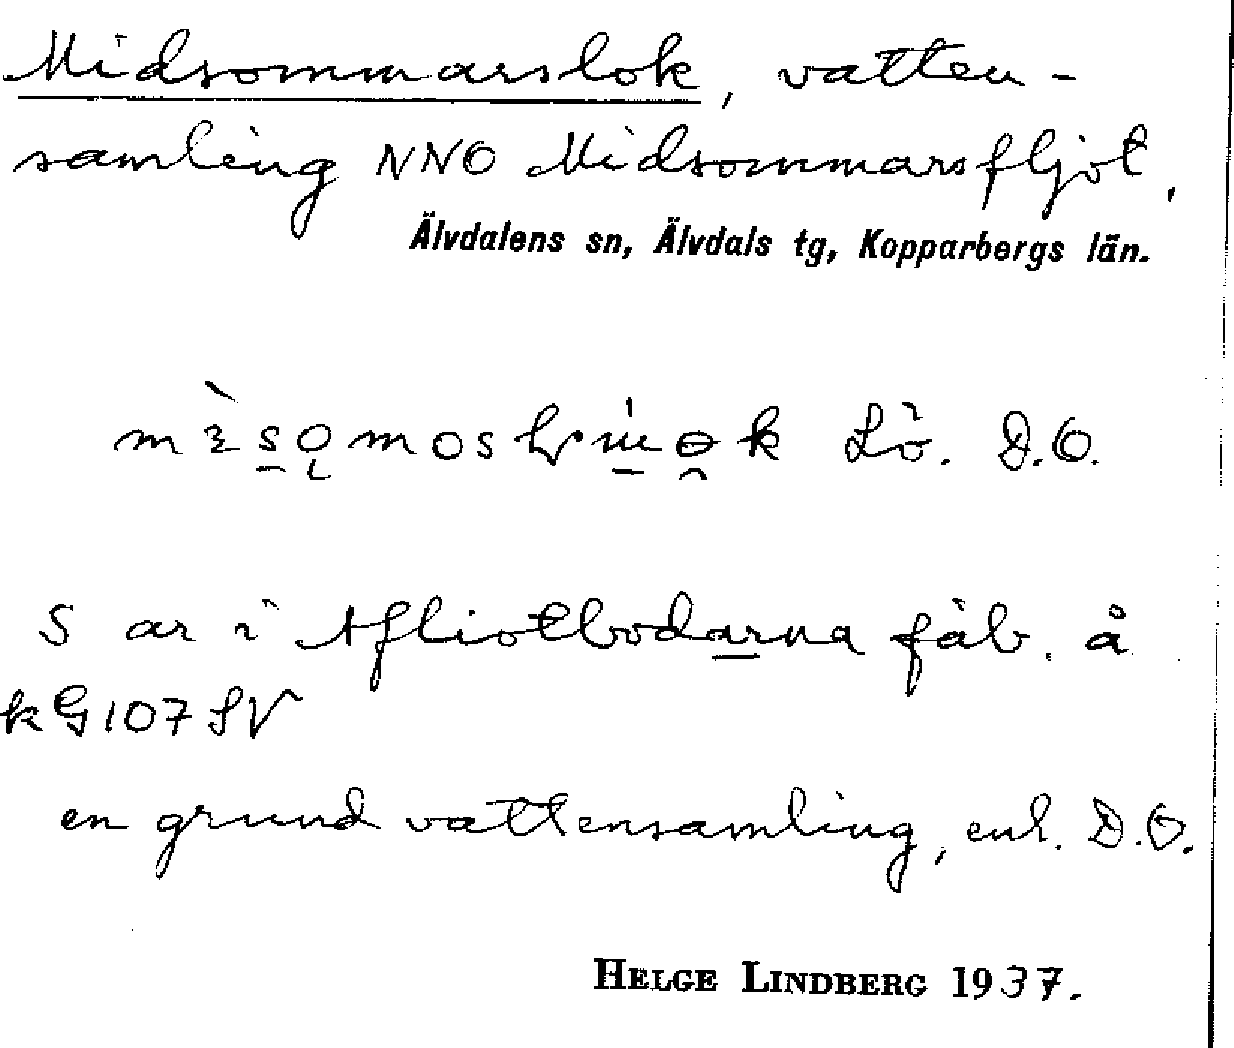 Midsommarslok, vatten-
samling NNO Midsommarsfljot,
Älvdalens sn, Älvdals tg, Kopparbergs län.
Lò. D.O.
S ar i Afliotbodarna fäb. å
kG107SV
en grund vattensamling, enl. D.O.
HELGE LINDBERG 1937.